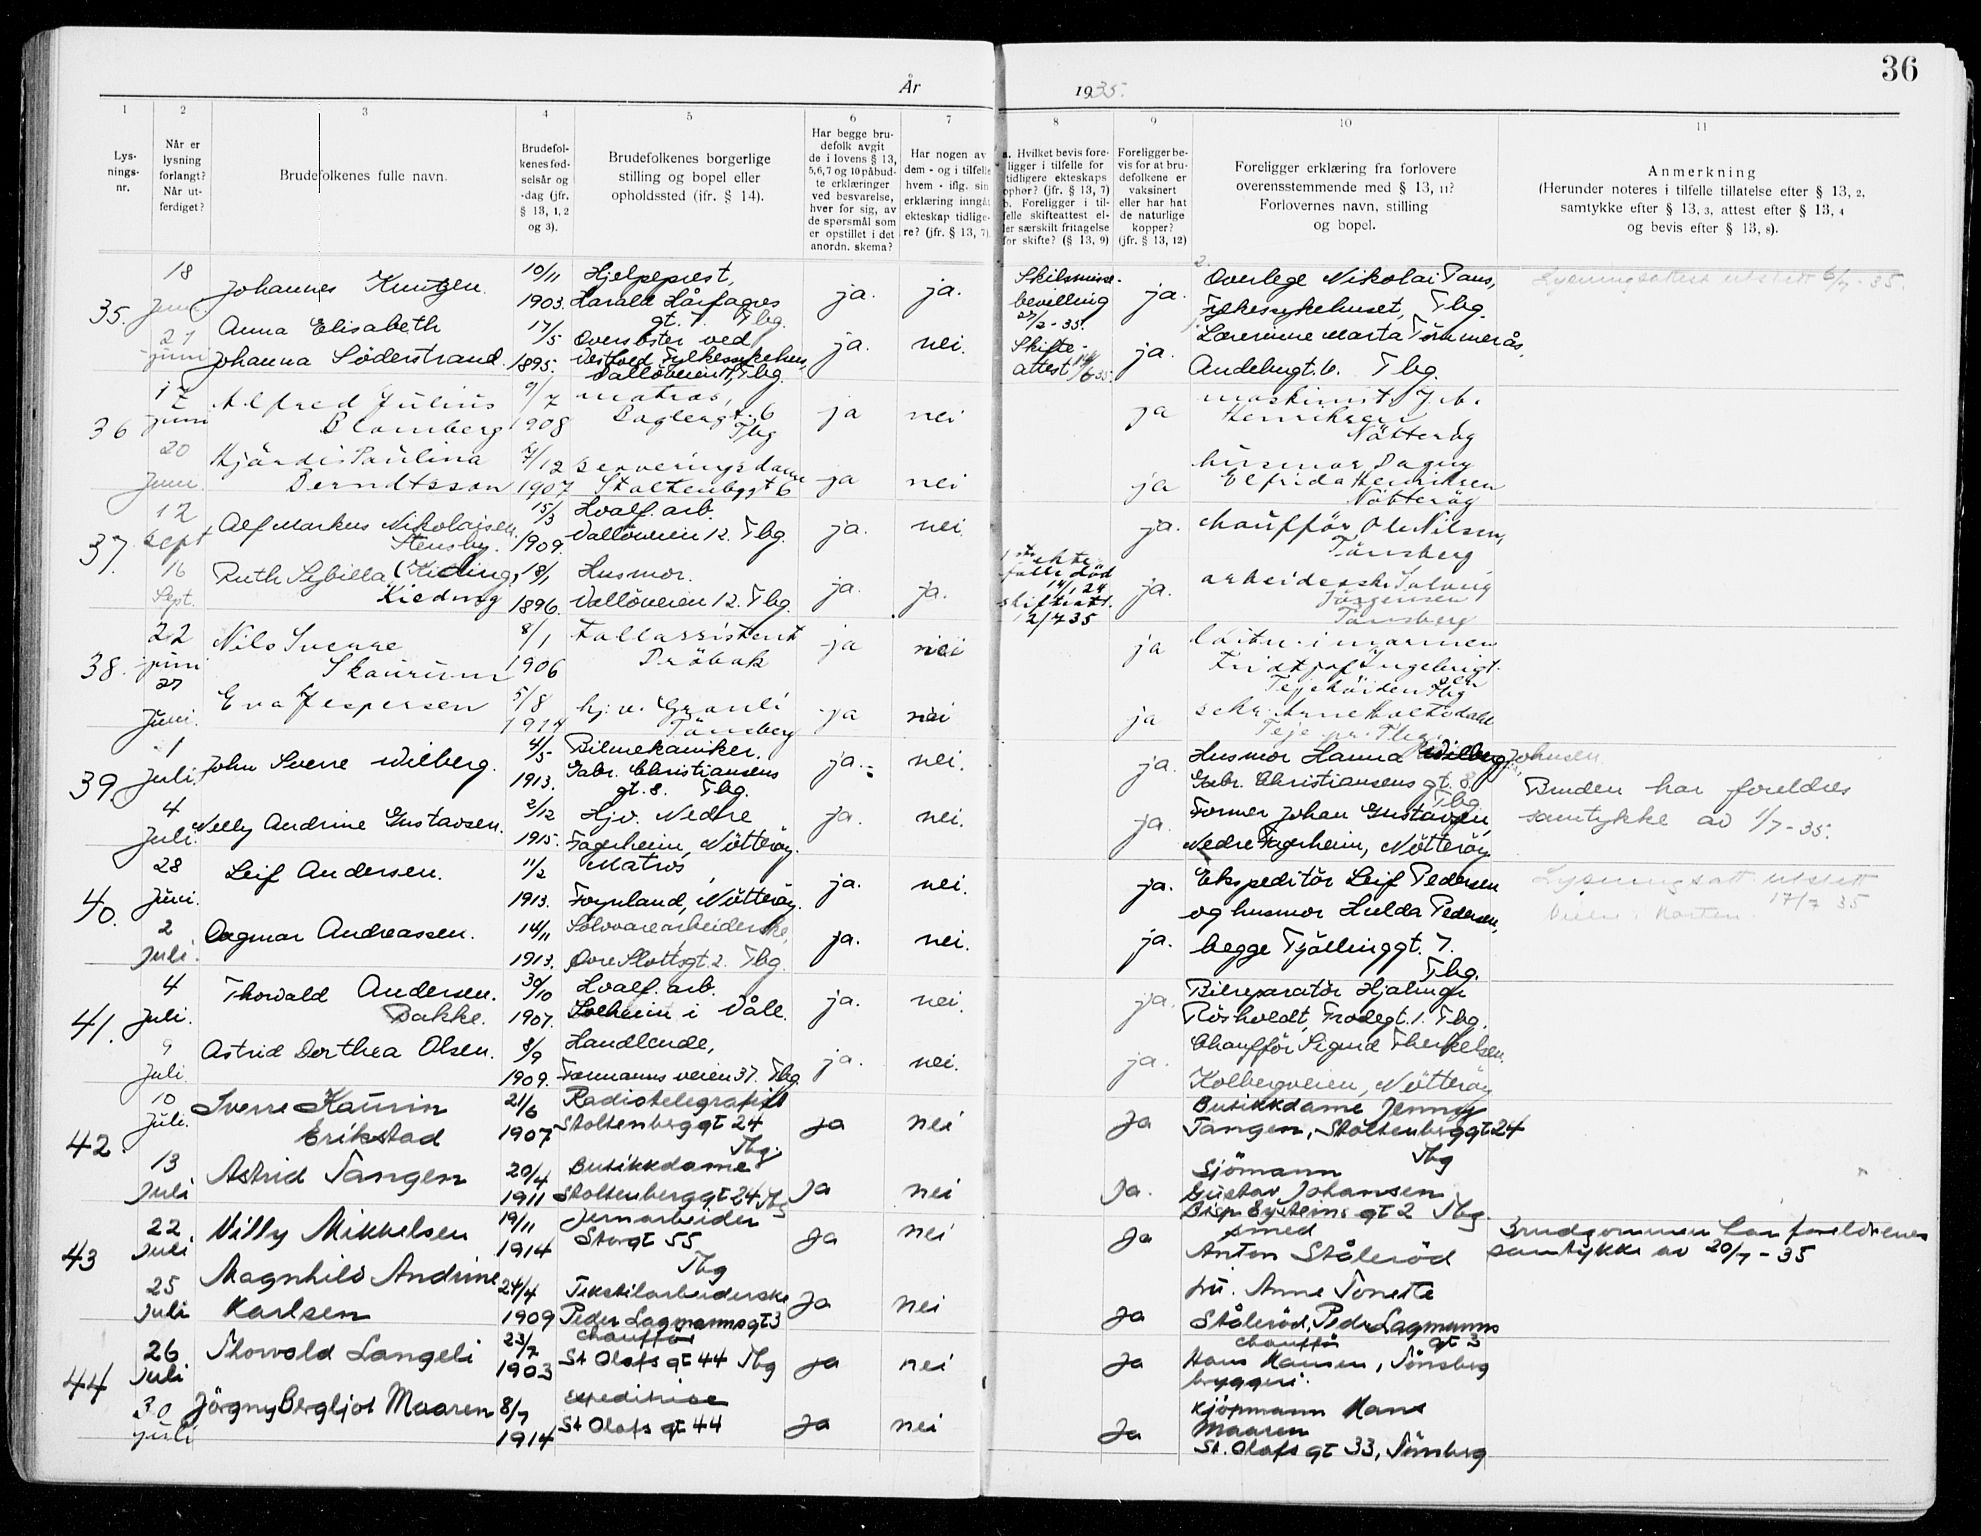 36
År 1935.
1 2 3 4 5 6 7 8 9 10 11
Lysningsnr.
Når er lysning forlangt? Når utferdiget?
Brudefolkenes fulle navn.
Brudefolkenes fødselsår og -dag (jfr. § 13, 1, 2 og 3).
Brudefolkenes borgerlige stilling og bopel eller opholdssted (jfr. § 14).
Har begge brudefolk avgit de i lovens § 13, 5, 6, 7 og 10 påbudte erklæringer ved besvarelse, hver for sig, av de spørsmål som er opstillet i det anordn. skema?
Har nogen av dem - og i tilfelle hvem - iflg. sin erklæring inngåt ekteskap tidligere? (jfr. § 13, 7).
a. Hvilket bevis foreligger i tilfelle for tidligere ekteskaps ophør? (jfr. § 13, 7) b. Foreligger i tilfelle skifteattest eller særskilt fritagelse for skifte? (§ 13, 9)
Foreligger bevis for at brudefolkene er vaksinert eller har hat de naturlige kopper? (jfr. § 13, 12)
Foreligger erklæring fra forlovere overensstemmende med § 13, 11? Forlovernes navn, stilling og bopel.
Anmerkning (Herunder noteres i tilfelle tillatelse efter § 13, 2, samtykke efter § 13, 3, attest efter § 13, 4 og bevis efter § 13, 8).
35.
18 juni
Johannes Knutzen.
10/11 1903.
Hjelpeprest,
Harald Hårfagres
gt. 7. Tbg.
ja. ja.
Skilsmisse-
bevilling
27/2-35.
ja.
2. Overlege Nikolai Paus,
Fylkessykehuset, Tbg.
Lysningsattest utstett 6/7-35.
27 juni
Anna Elisabeth
Johanna Söderstrand.
17/5 1895.
Oversöster ved
Vestfold Fylkessykehus,
Vallöveien 17, Tbg.
ja. nei.
Skifte-
attest 14/6 35
ja.
1. Lærerinne Marta Tömmerås,
Andebugt. 6. Tbg.
36
17 juni
Alfred Julius
Blomberg
9/7 1908
matros,
Baglergt. 6
Tbg
ja nei ja
maskinist J. M.
Henriksen
Nötteröy
20 Juni.
Hjördis Paulina
Berndtsson
7/12 1907
serveringsdame
Stoltenbggt 6
ja nei ja
husmor Dagny
Elfrida Henriksen
Nötteröy
37.
12 sept
Alf Markus Nikolaisen
Stensby.
15/3 1909.
Hvalf. arb.
Vallöveien 12. Tbg.
ja. nei. ja.
chaufför, Ole Nilsen,
Tönsberg
16 Sept.
Ruth Sybilla (Kitling)
18/1 1896.
Husmor.
Vallöveien 12. Tbg.
ja. ja.
död
14/1 24
skifteatt.
12/7 35
ja.
arbeiderske Solveig
Jörgensen
Tönsberg
38.
22 juni
Nils Sverre
Skaurum
8/1 1906
tollassistent
Dröbak
ja nei ja
löitn. i marinen
Fridtjof Ingebrigt-
sen
Teiehöiden Tbg
27 Juni.
Eva Jespersen
5/8 1914
hj. v. Granli
Tönsberg
ja nei ja
sekr. Arne Holtsdahl
Teie pr. Tbg.
39
1 Juli.
John Sverre Wilberg.
4/5 1913.
Bilmekaniker.
Gabr. Christiansens
gt. 8. Tbg.
ja. nei. ja.
Husmor Hanna Wilberg Johnsen
Gabr. Christiansens gt. 8.
Tbg.
4 Juli.
Nelly Andrine Gustavsen.
2/12 1915.
Hjv. Nedre
Fagerheim, Nötteröy.
ja. nei. ja.
Former Johan Gustavsen,
Nedre Fagerheim, Nötteröy
Bruden har foreldres
samtykke av 1/7-35.
40.
28 Juni.
Leif Andersen.
11/2 1913.
Matros,
Föynland, Nötteröy.
ja. nei. ja.
Ekspeditör Leif Pedersen
og husmor Hulda Pedersen,
Lysningsatt. utstett
17/7 35
2 Juli.
Dagmar Andreassen.
14/11 1913.
Sölvvarearbeiderske,
Övre Slottsgt 2. Tbg.
ja. nei. ja.
begge Fjöllinggt. 7.
Tbg.
41.
4 Juli.
Thorvald Andersen.
Bakke.
30/10 1907.
Hvalf. arb.
Solheim i Våle.
ja. nei. ja.
Bilreparatör Hjalmar
Rösholdt, Frodegt. 1. Tbg.
9 Juli.
Astrid Dorthea Olsen.
8/9 1909.
Handlende,
Farmanns veien 37. Tbg
ja. nei. ja.
Chaufför Sigurd Therkelsen.
Kolbergveien, Nötteröy
42.
10 Juli.
Sverre Kaurin
Erikstad
21/6 1907
Radiotelegrafist
Stoltenberggt 24
Tbg.
ja nei ja
Butikkdame Jenny
Tangen, Stoltenberggt 24
Tbg
13 Juli
Astrid Tangen
20/4 1911
Butikkdame
Stoltenberggt 24 Tbg
ja nei ja.
Sjömann
Gustav Johansen
Bisp Eysteins gt 2 Tbg.
43
22 Juli
Villy Mikkelsen
19/11 1914
Jernarbeider
Storgt 55
Tbg
ja nei ja
smed
Anton Ståleröd
Brudgommen har foreldrenes
samtykke av 20/7-35
25 Juli
Magnhild Andrine
Karlsen
24/4 1909
Tekstilarbeiderske
Peder Lagmannsgt 3
ja nei ja
fru. Anne Tonette
Ståleröd, Peder Lagmanns
gt 3
44
26 Juli
Thorvald Langeli
23/7 1903
chaufför
St Olafs gt 44 Tbg
ja nei ja
chaufför
Hans Hansen, Tönsberg
bryggeri.
30 juli
Jörgny Bergljot Maaren
8/7 1914
expeditrise
St Olafs gt 44
ja nei ja
Kjöpmann Hans
Maaren
St. Olafs gt 33, Tönsberg